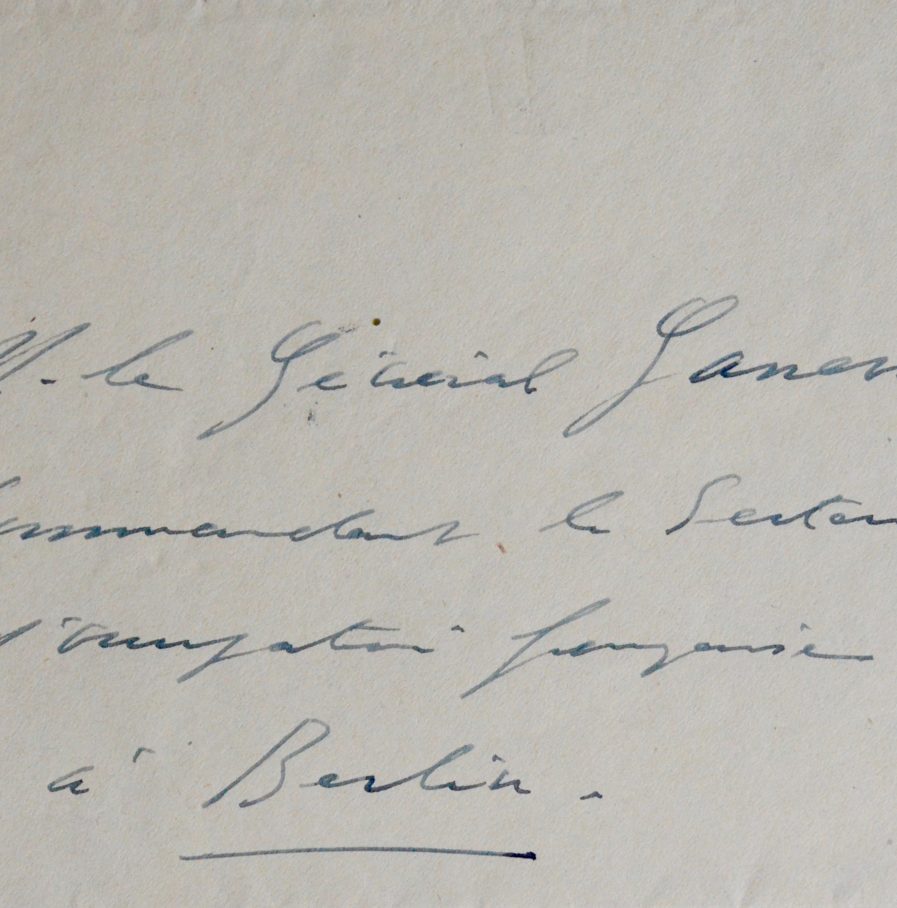 M. le Général Ganev
Commandant le Secteur
d'occupation française
à Berlin.